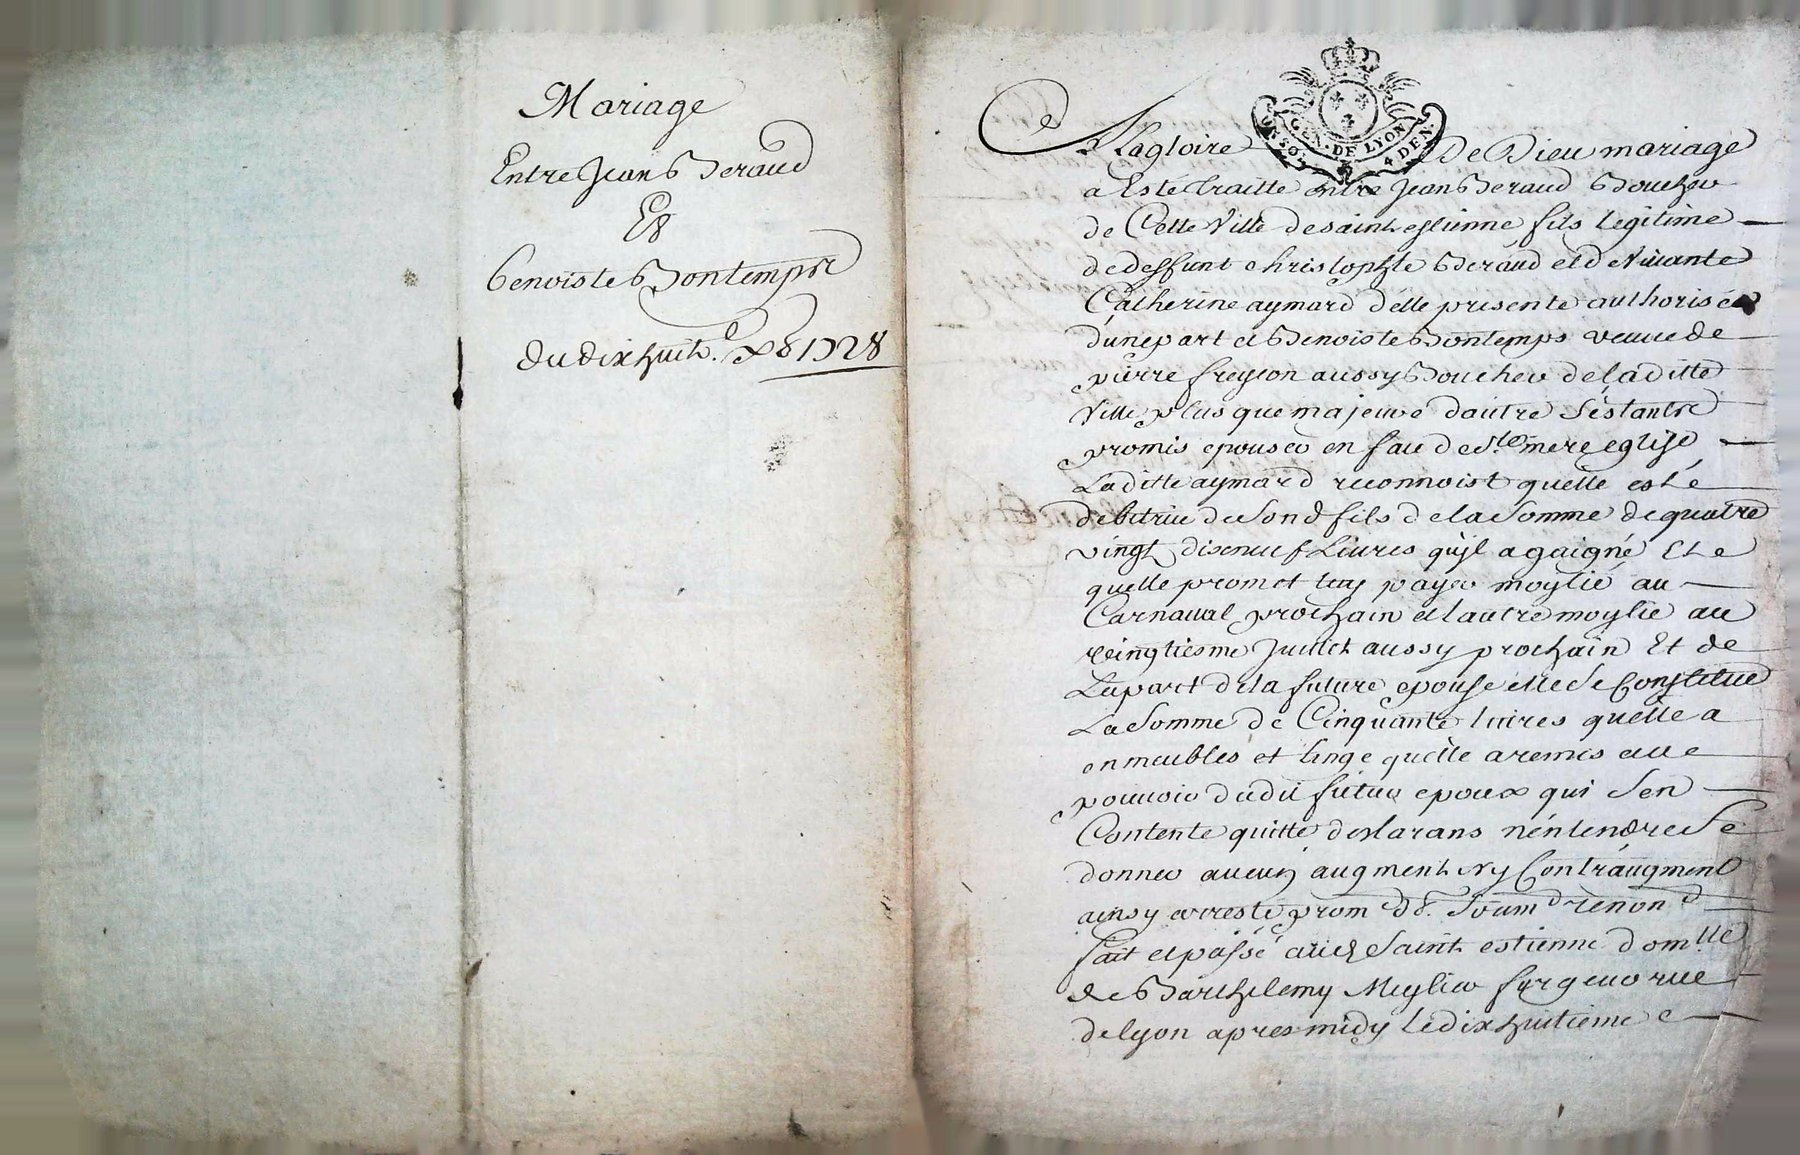 Mariage
Entre Jean Beraud
Et
Benoiste Bontempsr
du dix huit. xbre 1728
GEN. DE LYON
4 DEN.
A La gloire De Dieu mariage
a Esté traitté entre Jean Beraud Boucher
de Cette Ville de saint estienne fils legitime
de deffunt christophle Beraud et de Vivante
Catherine aymard d'elle presente authorisée
d'une part et Benoiste Bontemps veuve de
pierre freycon aussy Boucher de la ditte
Ville plus que majeure d'autre s'estants
promis epouser en face de Ste mere eglise
La ditte aymard reconnoist quelle est
debitrice du Sond fils de la Somme de quatre
vingt dixneuf Livres qu'jl a gaigné Et
quelle promet luy payer moytié au
Carnaval prochain et l'autre moytie au
vingtiesme Juillet aussy prochain Et de
La part de la future epouse elle se Constitue
La Somme de Cinquante livres quelle a
en meubles et linge quelle a remis au
pouvoir dudit futur epoux qui s'en
Contente quitte declarans n'entendre Se
donner aucun augment Ny Contr'augment
ainsy arresté prom
fait et passé audt Saint estienne dom.lle
de Barthelemy Meylier forgeur rue
de lyon apres midy le dix huitieme